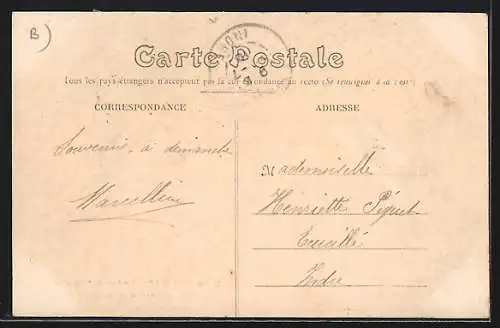 B)
Carte Postale
Tous les pays étrangers n'acceptent pas la correspondance au recto (Se renseigner à la Poste)
CORRESPONDANCE
ADRESSE
Souvenir, à dimanche
Marcelline
Mademoiselle
Henriette
Indre